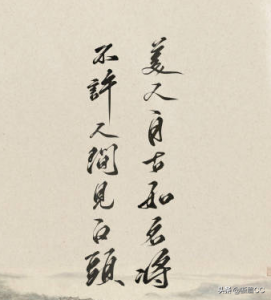 美人自古如名将
不許人间見白頭
头条@琐画CC